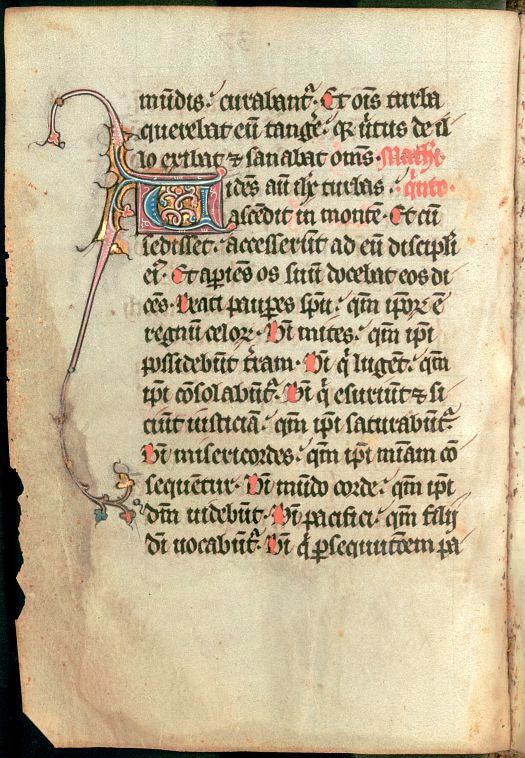 mūdis. curabant᷑. Et oīs turba
querebat eū tanḡe. qr u̓tus de il
lo exibat ⁊ sanabat oms̄. Math̓i.
Uidēs aū ih̄c turbas. qͥnto.
ascēdit in montē. Et cū
sedisset. accesserūt ad eū discipl̓i
ei᷒. Et aꝑiēs os suū docebat eos di
cēs. Beati pauꝑes sp̄u. qm̄ ip̄oꝝ ē
regnū celoꝝ. Bt̄i mites. qm̄ ip̄i
possidebūt t̓ram. Bt̄i qͥ lugēt. qm̄
ip̄i cōsolabūt᷑. Bt̄i qͥ esuriūt ⁊ si
ciūt iusticiā. qm̄ ip̄i saturabūt᷑.
Bt̄i misericordes. qm̄ ip̄i mīam cō
sequentur. Bt̄i mūdo corde. qm̄ ip̄i
dm̄ uidebūt. Bt̄i pacifici. qm̄ filij
dī uocabūt᷑. Bt̄i qͥ ꝑsequut̓oem pa